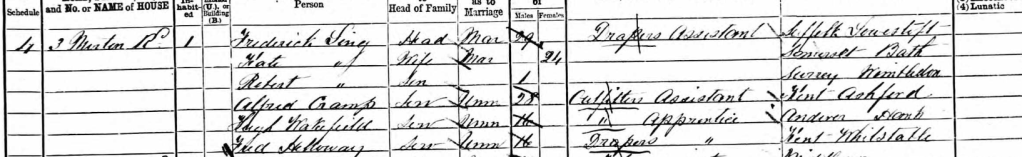 Schedule and No. or NAME of HOUSE In habit- ed (U.), or Building (B.) Person Head of Family as to Marriage of Males Females (4) Lunatic
4 3 Merton Rd 1 Frederick Ling Head Mar 29 Drapers Assistant Suffolk Lowestoft
Kate " Wife Mar 24 Somerset Bath
Robert " Son 1 Surrey Wimbledon
Alfred Cramp Serv Unm 28 Outfitters Assistant Kent Ashford
Hugh Wakefield Serv Unm 16 " Apprentice Andover Hants
Fred Holloway Serv Unm 16 Drapers " Kent Whitstable